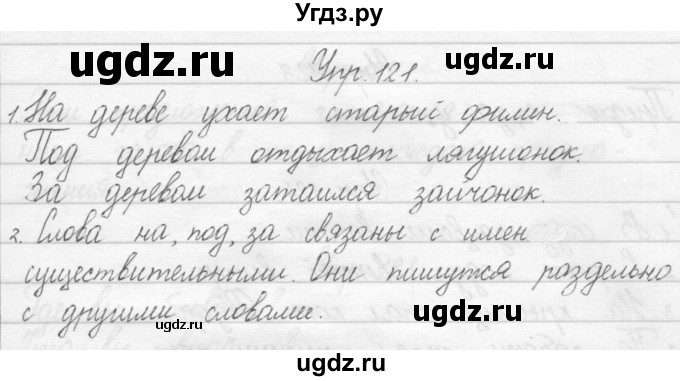 Угдз.ру
ugdz.ru ugdz.ru
Упр. 121.
1. На дереве ухает старый филин.
Под деревом отдыхает лягушонок.
За деревом затаился зайчонок.
ugdz.ru ugdz.ru
2. Слова на, под, за связаны с имен
существительными. Они пишутся раздельно
с другими словами.
ugdz.ru ugdz.ru
ugdz.ru